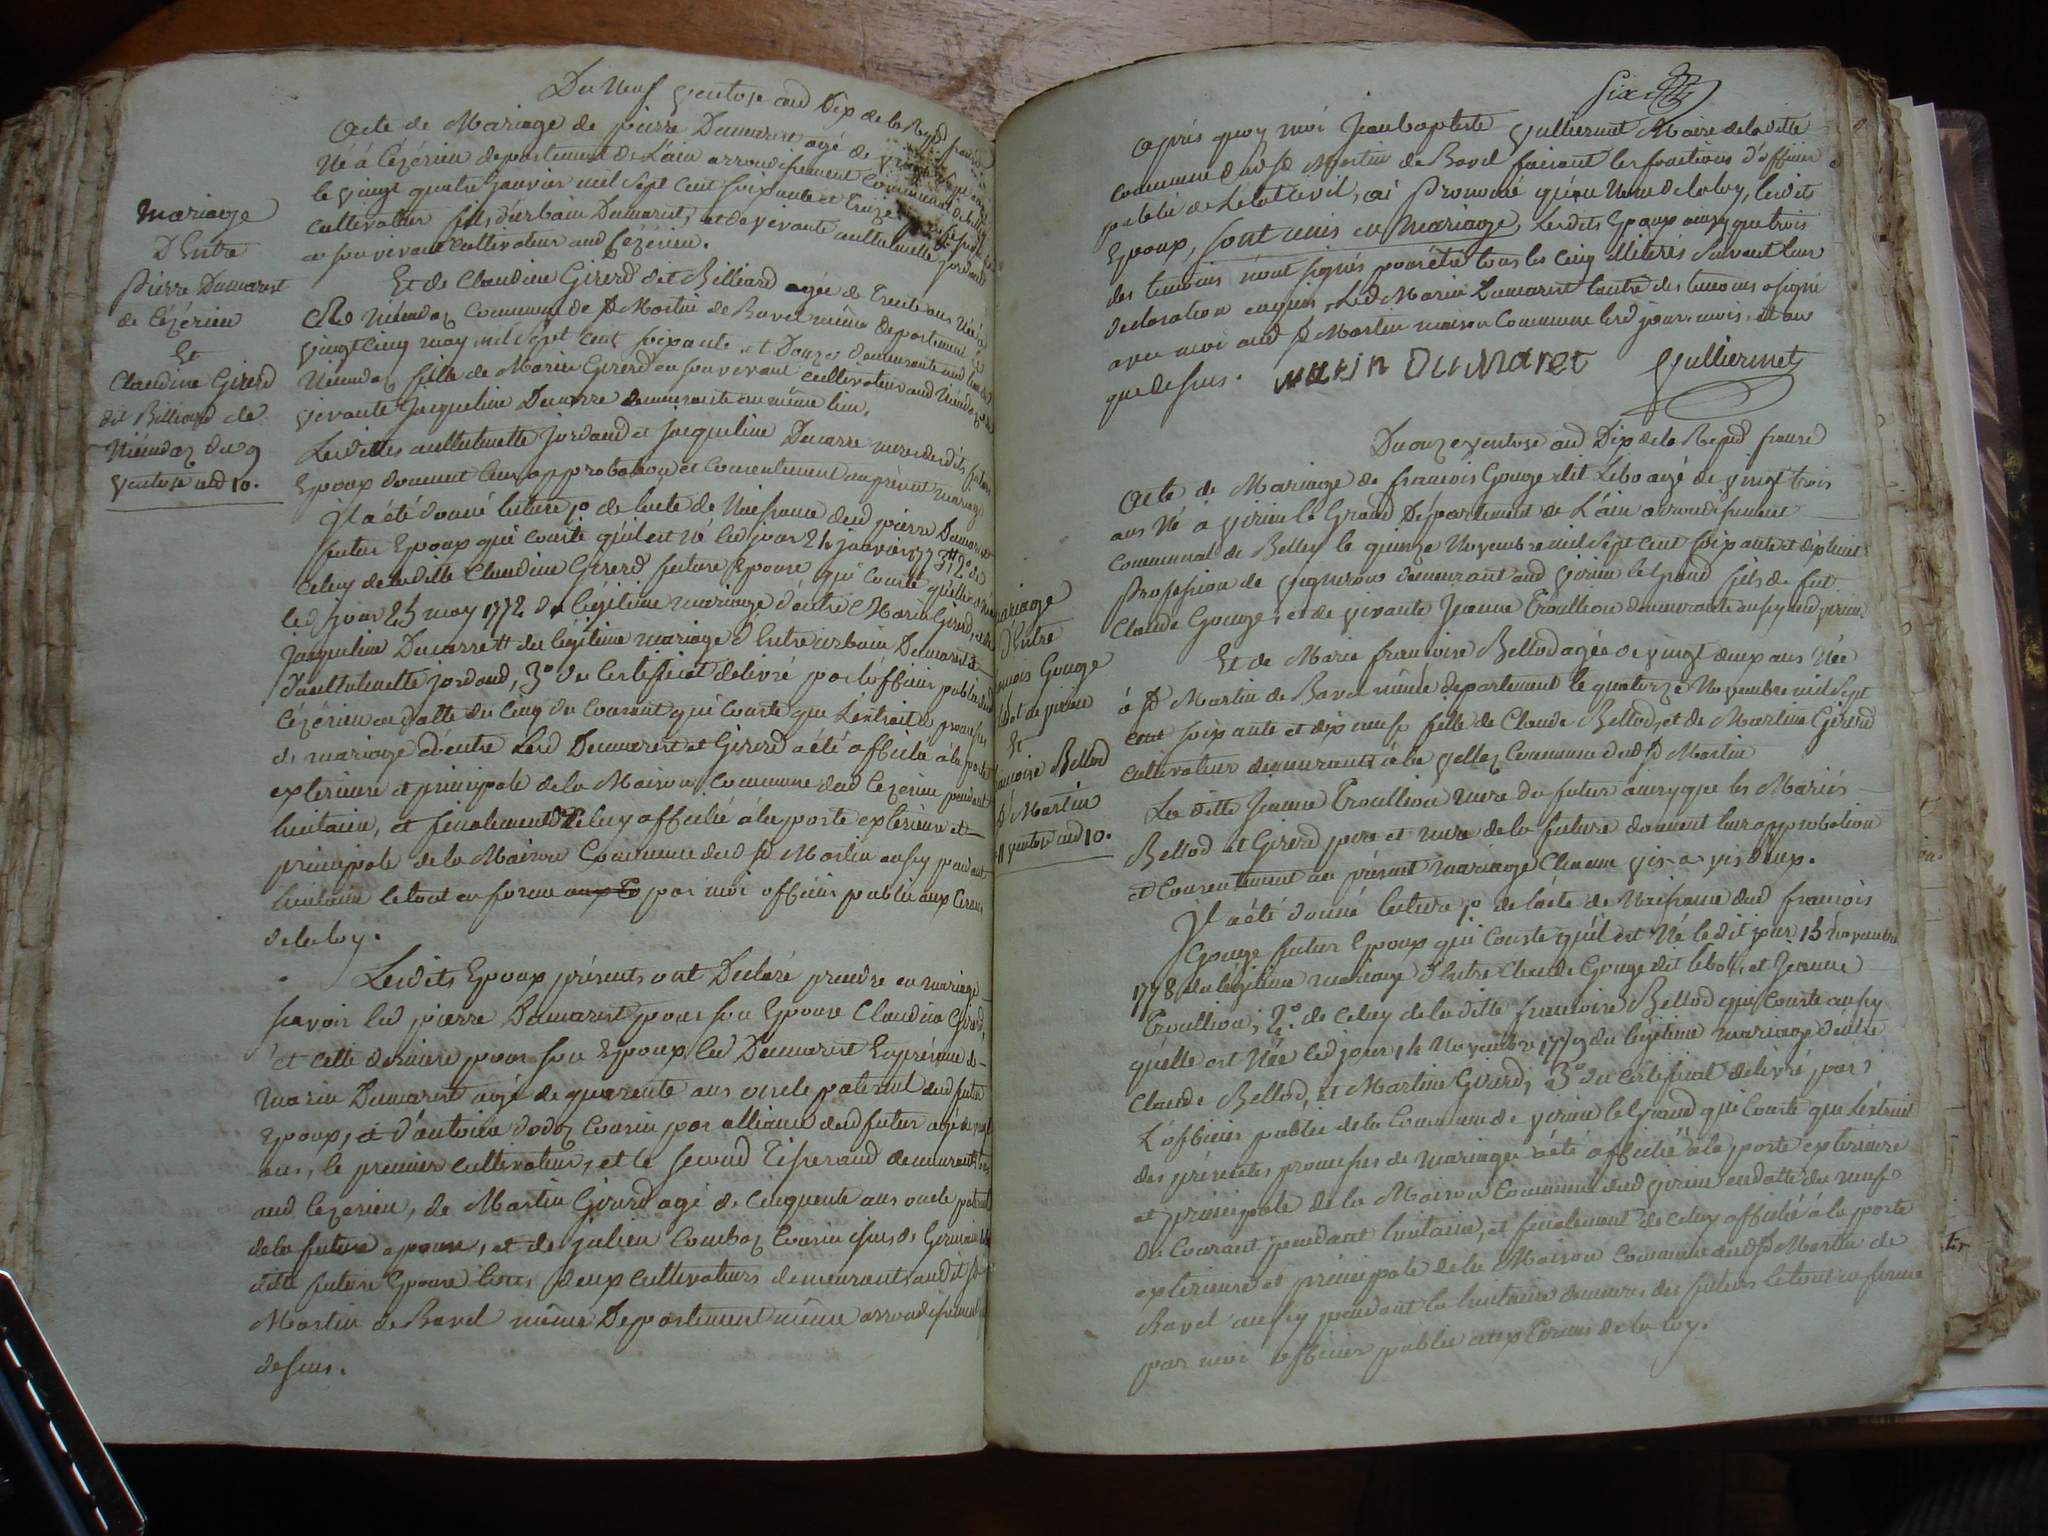 Du Neuf ventose and Dix de la Repd franse
Acte de Mariage de pierre Dumarest agé de
Né à Cézérieu departement de L'ain arrondissement Communal de
le vingt quatre janvier mil sept cent soixante et treize
cultivateur fils d'urbain Dumarest, et de vivante anthelmette jordand
en son vivant cultivateur aud Cézérieu.
Et de Claudine Girerd dit Billiard agée de Trente ans Née
Commune de St Martin de Bavel même departement le
vingt cinq may mil sept cent soixante et Douze demeurante aud
fille de Marin Girerd en son vivant cultivateur aud
vivante Jacqueline Ducarre demeurante au même lieu.
Lesdittes anthelmette Jordand et Jacqueline Ducarre meres desdits futurs
Epoux donnent leur approbation et consentement au présent mariage
Il a été donné lecture 1o de l'acte de Naissance dud pierre Dumarest
futur Epoux qui conste qu'il est né led jour 24 janvier 1773, 2o de
celuy de laditte Claudine Girerd future Epouse qui conste qu'elle est née
led jour 25 may 1772 du légitime mariage d'entre Marin Girerd, et de
Jacqueline Ducarre du légitime mariage d'Entre urbain Dumarest et
d'anthelmette jordand, 3o du Certificat delivré par l'officier public dud
Cézérieu en datte du cinq du courant qui conste que L'extrait de promesses
de mariage d'entre lesd Dumarest et Girerd a été affiché à la porte
exterieure et principale de la Maison Commune dud Cezerieu pendant
huitaine, et finalement de celuy affiché à la porte extérieure et
principale de la Maison Commune dud St Martin aussy pendant
huitaine le tout en forme par moi officier public aux termes
de la loy.
Lesdits Epoux présents ont Declaré prendre en mariage
savoir led pierre Dumarest pour son Epouse Claudine Girerd,
et cette derniere pour son Epoux led Dumarest En présence de
Marin Dumarest agé de quarente ans oncle paternel dud futur
Epoux, et d'antoine dodoz Cousin par alliance dud futur agé de
ans, le premier cultivateur, et le second Tisserand demeurants
aud Cezerieu, de Martin Girerd agé de cinquante ans oncle paternel
de la future epouse, et de julien Combaz Cousin issus de Germain de la
ditte future Epouse deux cultivateurs demeurants audit St
Martin de Bavel même Departement même arrondissement que
dessus.
Mariage
D'Entre
Pierre Dumarest
de Cézérieu
Et
Claudine Girerd
dit Billiard de
du 9
ventose and 10.
Six
Après quoy moi Jeanbaptiste Gulliermet Maire de la ditte
commune dud St Martin de Bavel faisant les fonctions d'officier
public de L'etat Civil, ai Prononcé qu'au Nom de la loy, lesdits
Epoux, sont unis en Mariage, Lesdits Epoux ainsy que trois
des temoins n'ont signés pour être tous les cinq illiterés suivant leur
declaration enquis, Led Marin Dumarest l'autre des temoins a signé
avec moi aud St Martin maison Commune lesd jour, mois, et an
que dessus. Marin Dumaret Gulliermet
Du onze ventose and Dix de la Repd franse
Acte de Mariage de francois Gouge dit Lébo agé de vingt trois
ans Né à virieu le Grand Département de L'ain arrondissement
Communal de Belley le quinze Novembre mil sept cent soixante et dix huit
Profession de vigneron demeurant aud virieu le Grand fils de fut
Claude Gouge, et de vivante Jeanne Troullion demeurante aussy aud virieu.
Et de Marie francoise Bellod agée de vingt deux ans Née
à St Martin de Bavel même departement le quatorze Novembre mil sept
cent soixante et dix neuf fille de Claude Bellod, et de Martine Girerd
cultivateur demeurants à la vellaz Commune dud St Martin
La ditte Jeanne Troullion mere du futur ainsy que les Mariés
Bellod et Girerd pere et mere de la future donnent leur approbation
et consentement au présent mariage Chacun vis-a-vis d'eux.
Il a été donné lecture 1o de l'acte de Naissance dud francois
Gouge futur Epoux qui conste qu'il est Né ledit jour 15 Novembre
1778 du légitime mariage d'Entre Claude Gouge dit lebo, et Jeanne
Troullion, 2o de celuy de la ditte francoise Bellod qui conste aussy
qu'elle est Née led jour 14 Novembre 1779 du legitime mariage d'entre
Claude Bellod, et Martine Girerd, 3o du certificat delivré par
L'officier public de la Commune de virieu le Grand qui conste que L'extrait
des présentes promesses de mariage a été affiché à la porte exterieure
et principale de la Maison Commune dud virieu en datte du neuf
du courant pendant huitaine, et finalement de celuy affiché à la porte
exterieure et principale de la Maison Commune dud St Martin de
Bavel aussy pendant la huitaine des futurs le tout en forme
par moi officier public aux termes de la loy.
mariage
d'Entre
francois Gouge
virieu
Et
francoise Bellod
St Martin
11 ventose and 10.